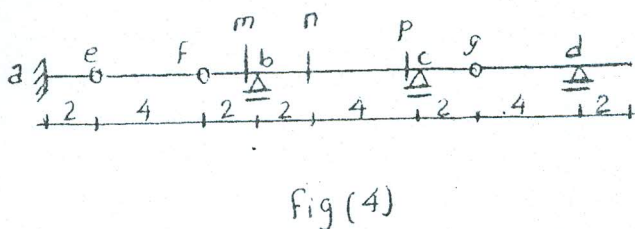 m n p
a e f b c g d
2 4 2 2 4 2 4 2
fig (4)